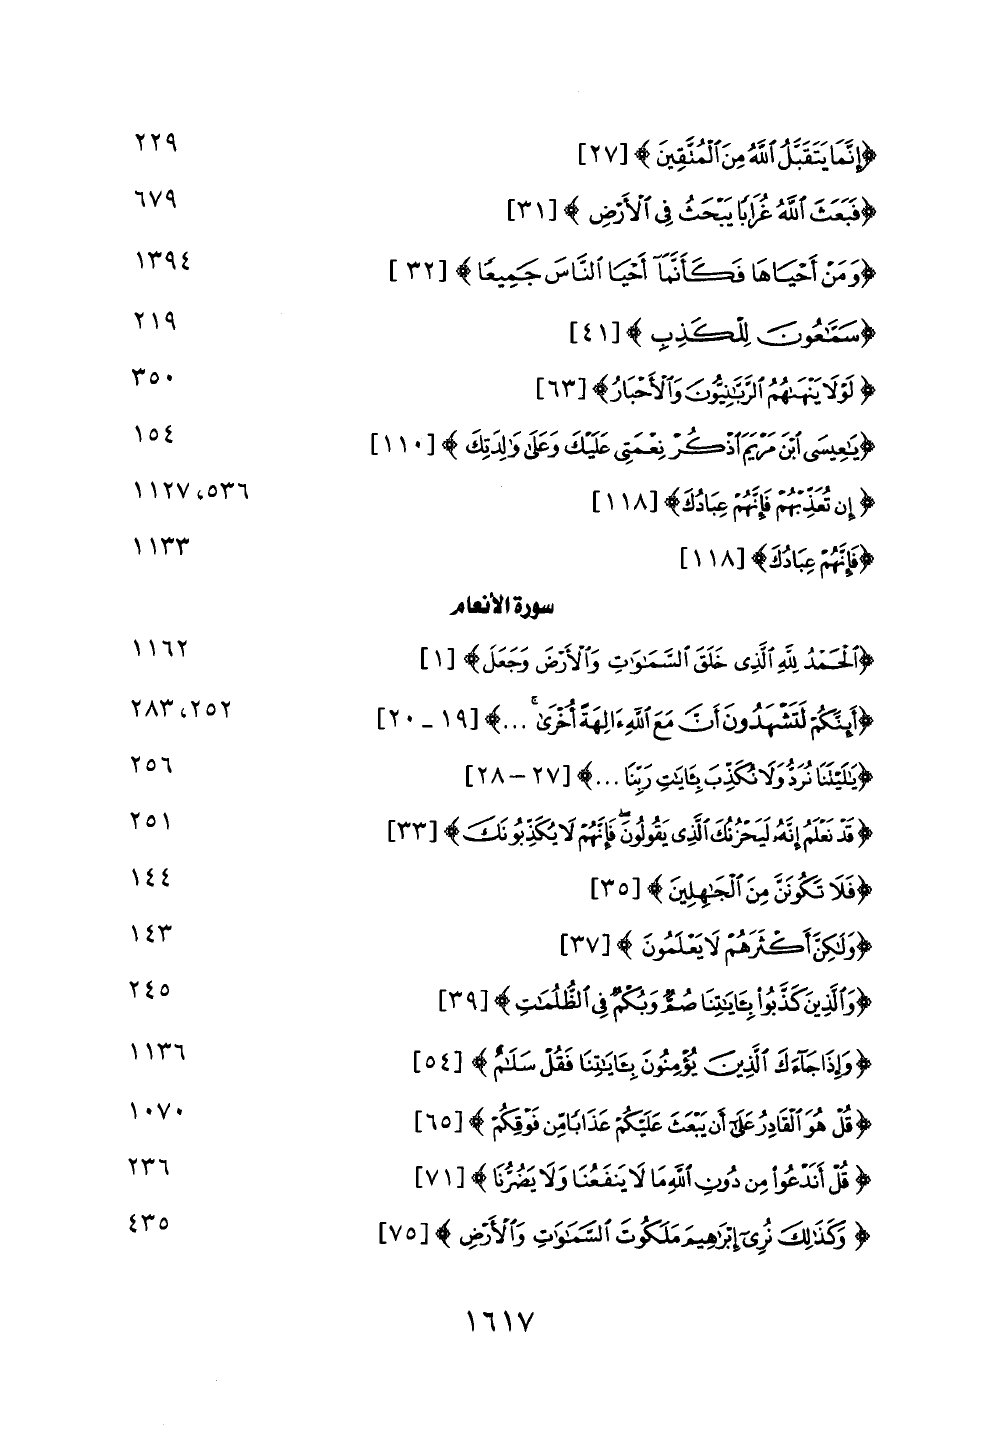 ﴿إِنَّمَا يَتَقَبَّلُ ٱللَّهُ مِنَ ٱلْمُتَّقِينَ ﴾ [٢٧] ٢٢٩
﴿فَبَعَثَ ٱللَّهُ غُرَابًا يَبْحَثُ فِى ٱلْأَرْضِ ﴾ [٣١] ٦٧٩
﴿وَمَنْ أَحْيَاهَا فَكَأَنَّمَآ أَحْيَا ٱلنَّاسَ جَمِيعًا ﴾ [٣٢ ] ١٣٩٤
﴿سَمَّٰعُونَ لِلْكَذِبِ ﴾ [٤١] ٢١٩
﴿ لَوْلَا يَنْهَىٰهُمُ ٱلرَّبَّٰنِيُّونَ وَٱلْأَحْبَارُ﴾ [٦٣] ٣٥٠
﴿يَٰعِيسَى ٱبْنَ مَرْيَمَ ٱذْكُرْ نِعْمَتِى عَلَيْكَ وَعَلَىٰ وَٰلِدَتِكَ ﴾ [١١٠] ١٥٤
﴿ إِن تُعَذِّبْهُمْ فَإِنَّهُمْ عِبَادُكَ﴾ [١١٨] ٥٣٦، ١١٢٧
﴿فَإِنَّهُمْ عِبَادُكَ﴾ [١١٨] ١١٣٣
سورة الأنعام
﴿ٱلْحَمْدُ لِلَّهِ ٱلَّذِى خَلَقَ ٱلسَّمَٰوَٰتِ وَٱلْأَرْضَ وَجَعَلَ﴾ [١] ١١٦٢
﴿أَئِنَّكُمْ لَتَشْهَدُونَ أَنَّ مَعَ ٱللَّهِ ءَالِهَةً أُخْرَىٰ ۚ ...﴾ [١٩ ـ ٢٠] ٢٥٢، ٢٨٣
﴿يَٰلَيْتَنَا نُرَدُّ وَلَا نُكَذِّبَ بِـَٔايَٰتِ رَبِّنَا ...﴾ [٢٧ – ٢٨] ٢٥٦
﴿ قَدْ نَعْلَمُ إِنَّهُۥ لَيَحْزُنُكَ ٱلَّذِى يَقُولُونَ ۖ فَإِنَّهُمْ لَا يُكَذِّبُونَكَ ﴾ [٣٣] ٢٥١
﴿فَلَا تَكُونَنَّ مِنَ ٱلْجَٰهِلِينَ ﴾ [٣٥] ١٤٤
﴿وَلَٰكِنَّ أَكْثَرَهُمْ لَا يَعْلَمُونَ ﴾ [٣٧] ١٤٣
﴿وَٱلَّذِينَ كَذَّبُوا۟ بِـَٔايَٰتِنَا صُمٌّ وَبُكْمٌ فِى ٱلظُّلُمَٰتِ ﴾ [٣٩] ٢٤٥
﴿وَإِذَا جَآءَكَ ٱلَّذِينَ يُؤْمِنُونَ بِـَٔايَٰتِنَا فَقُلْ سَلَٰمٌ ﴾ [٥٤] ١١٣٦
﴿قُلْ هُوَ ٱلْقَادِرُ عَلَىٰٓ أَن يَبْعَثَ عَلَيْكُمْ عَذَابًا مِّن فَوْقِكُمْ ﴾ [٦٥] ١٠٧٠
﴿ قُلْ أَنَدْعُوا۟ مِن دُونِ ٱللَّهِ مَا لَا يَنفَعُنَا وَلَا يَضُرُّنَا ﴾ [٧١] ٢٣٦
﴿ وَكَذَٰلِكَ نُرِىٓ إِبْرَٰهِيمَ مَلَكُوتَ ٱلسَّمَٰوَٰتِ وَٱلْأَرْضِ ﴾ [٧٥] ٤٣٥
١٦١٧